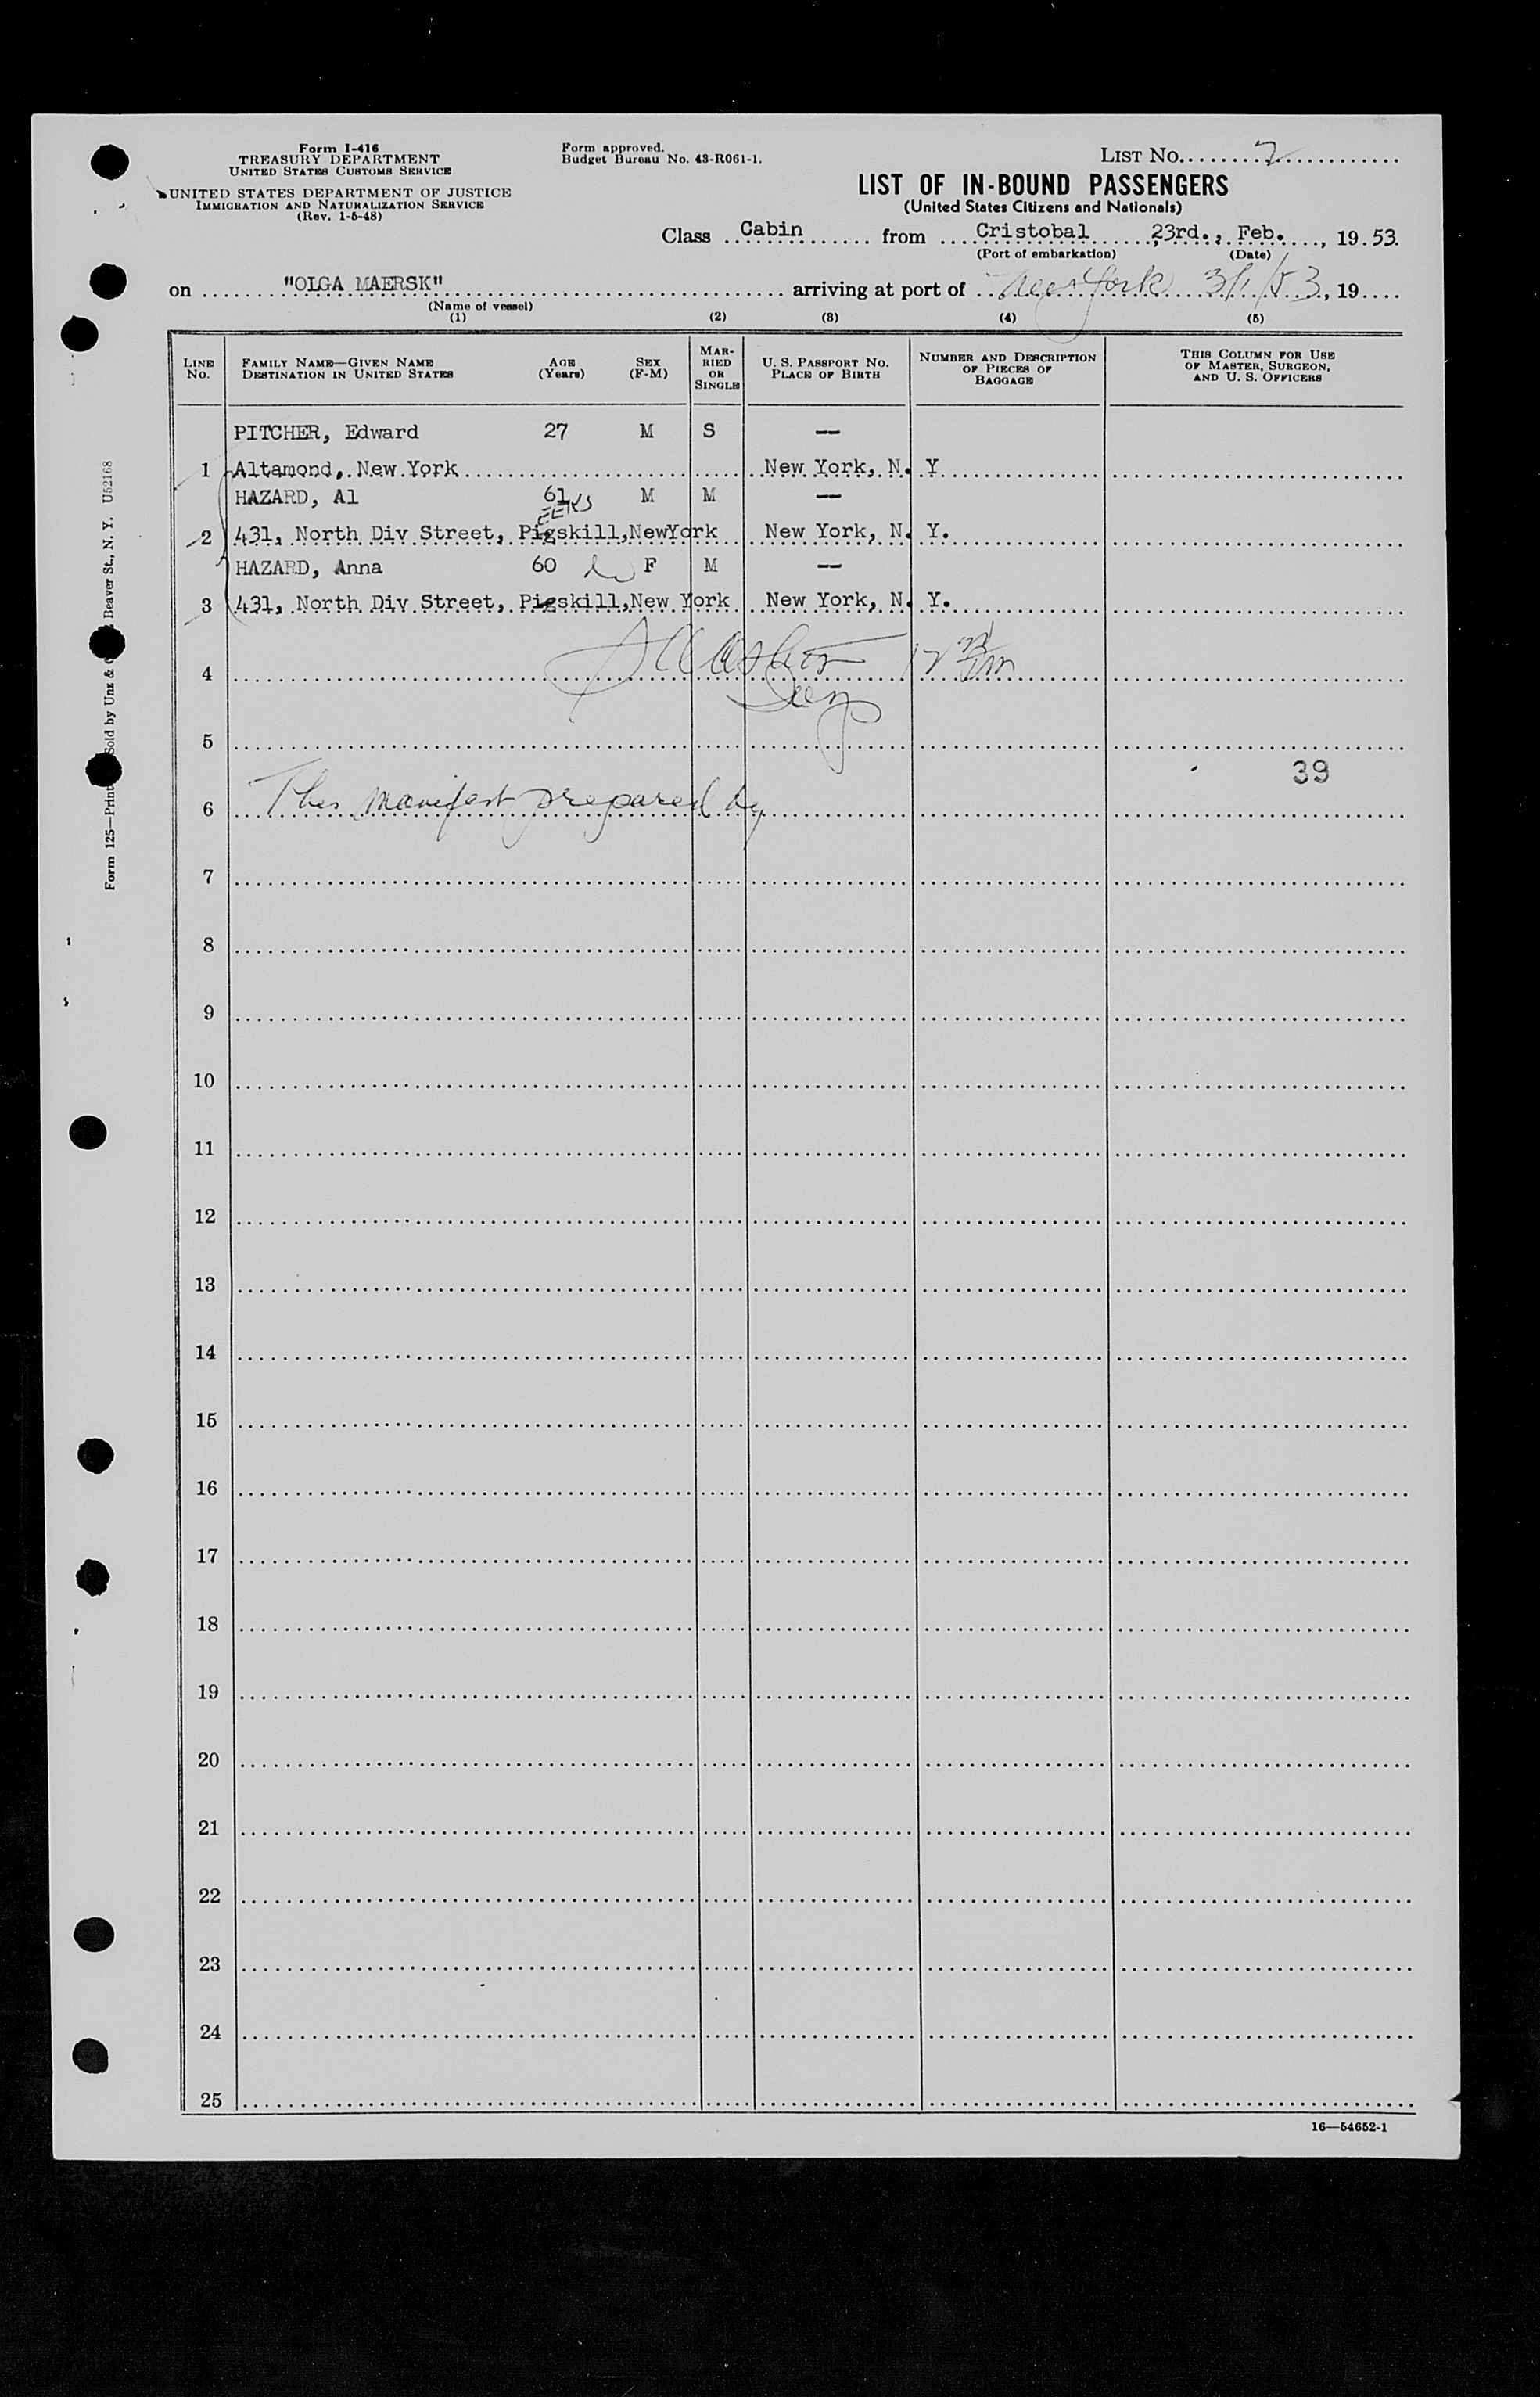 Form I-416
TREASURY DEPARTMENT
UNITED STATES CUSTOMS SERVICE
UNITED STATES DEPARTMENT OF JUSTICE
IMMIGRATION AND NATURALIZATION SERVICE
(Rev. 1-5-48)
Form approved.
Budget Bureau No. 43-R061-1.
LIST No. 2
LIST OF IN-BOUND PASSENGERS
(United States Citizens and Nationals)
Class Cabin from Cristobal, 23rd., Feb., 1953.
(Port of embarkation) (Date)
on "OLGA MAERSK" arriving at port of New York 3/1/53, 19
(Name of vessel)
(1) (2) (3) (4) (5)
LINE No. FAMILY NAME—GIVEN NAME DESTINATION IN UNITED STATES AGE (Years) SEX (F-M) MARRIED OR SINGLE U. S. PASSPORT No. PLACE OF BIRTH NUMBER AND DESCRIPTION OF PIECES OF BAGGAGE THIS COLUMN FOR USE OF MASTER, SURGEON, AND U. S. OFFICERS
PITCHER, Edward 27 M S —
1 Altamond, New York New York, N. Y
HAZARD, Al 61 M M —
EEKS
2 431, North Div Street, Pigskill, NewYork New York, N. Y.
HAZARD, Anna 60 F M —
3 431, North Div Street, Pigskill, New York New York, N. Y.
4
5
39
6 This manifest prepared by
7
8
9
10
11
12
13
14
15
16
17
18
19
20
21
22
23
24
25
16—54652-1
Form 125—Print Sold by Unz & Beaver St., N. Y. U52168